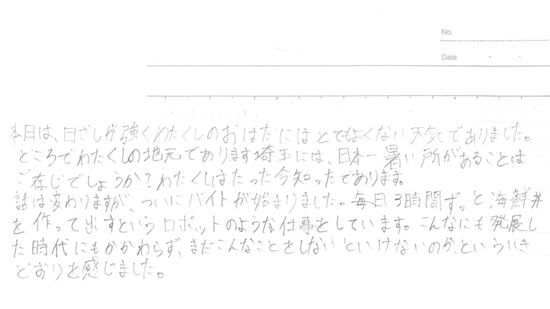 No.
Date
本日は、日ざしが強くわたくしのおはだにはとてもよくない天気でありました。
ところでわたくしの地元であります埼玉には、日本一暑い所があることは
ご存じでしょうか？わたくしはたった今知ったであります。
話は変わりますが、ついにバイトが始まりました。毎日3時間ずっと海鮮丼
を作って出すというロボットのような仕事をしています。こんなにも発展し
た時代にもかかわらず、まだこんなことをしないといけないのか、といういき
どおりを感じました。